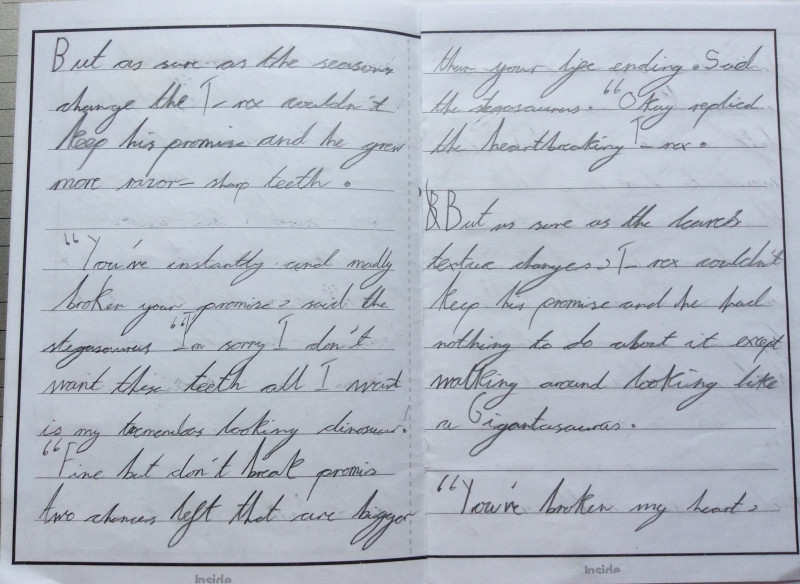 But as sure as the seasons
change the T-rex couldn't
keep his promise and he grew
more razor-sharp teeth.
"You've instantly and madly
broken your promise, said the
stegasaurus "I'm sorry I don't
want these teeth all I want
is my tremendos looking dinosaur!
"Fine but don't break promis
two chances left that are bigger
Inside
than your life ending. Said
the stegosaurus. "Okay replied
the heartbreaking T-rex.
But as sure as the leaves
texture changes, T-rex couldn't
keep his promise and he had
nothing to do about it except
walking around looking like
a Gigantasauras.
"You've broken my heart,
Inside